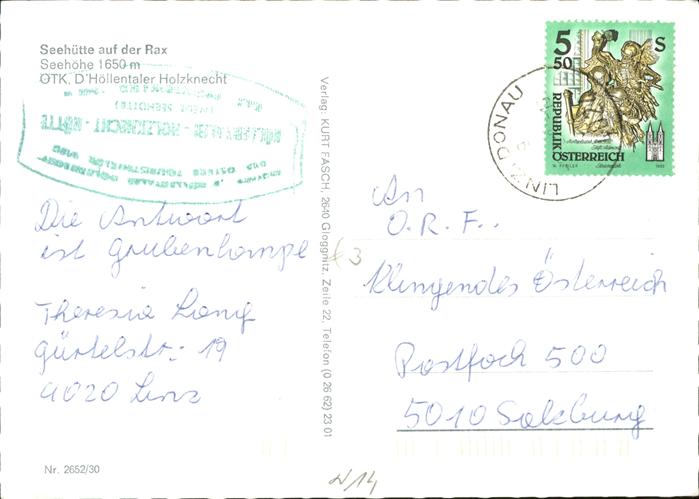 Seehütte auf der Rax
Seehöhe 1650 m
ÖTK, D'Höllentaler Holzknecht
HÖLLENTALER - HOLZKNECHT - HÜTTE
(NEUE SEEHÜTTE)
Die Antwort
ist Grubenlampe
Theresia Lang
Gürtelstr. 19
4020 Linz
Nr. 2652/30
Verlag: KURT FASCH, 2640 Gloggnitz, Zeile 22, Telefon (0 26 62) 23 01
5 50 S
REPUBLIK
ÖSTERREICH
LINZ DONAU
An
O.R.F..
Klingendes Österreich
Postfach 500
5010 Salzburg
N/14